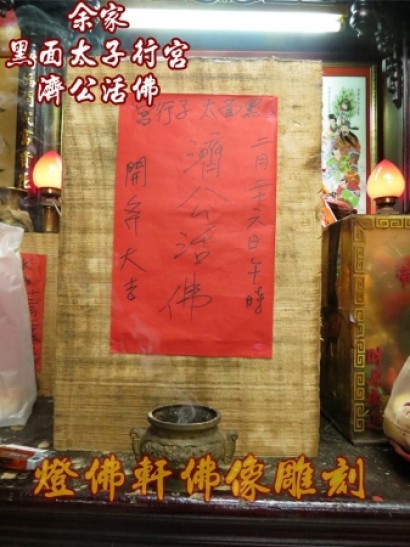 余家
黑面太子行宮
濟公活佛
黑面太子行宮
二月二十六日午時
濟公活佛
開斧大吉
燈佛軒佛像雕刻